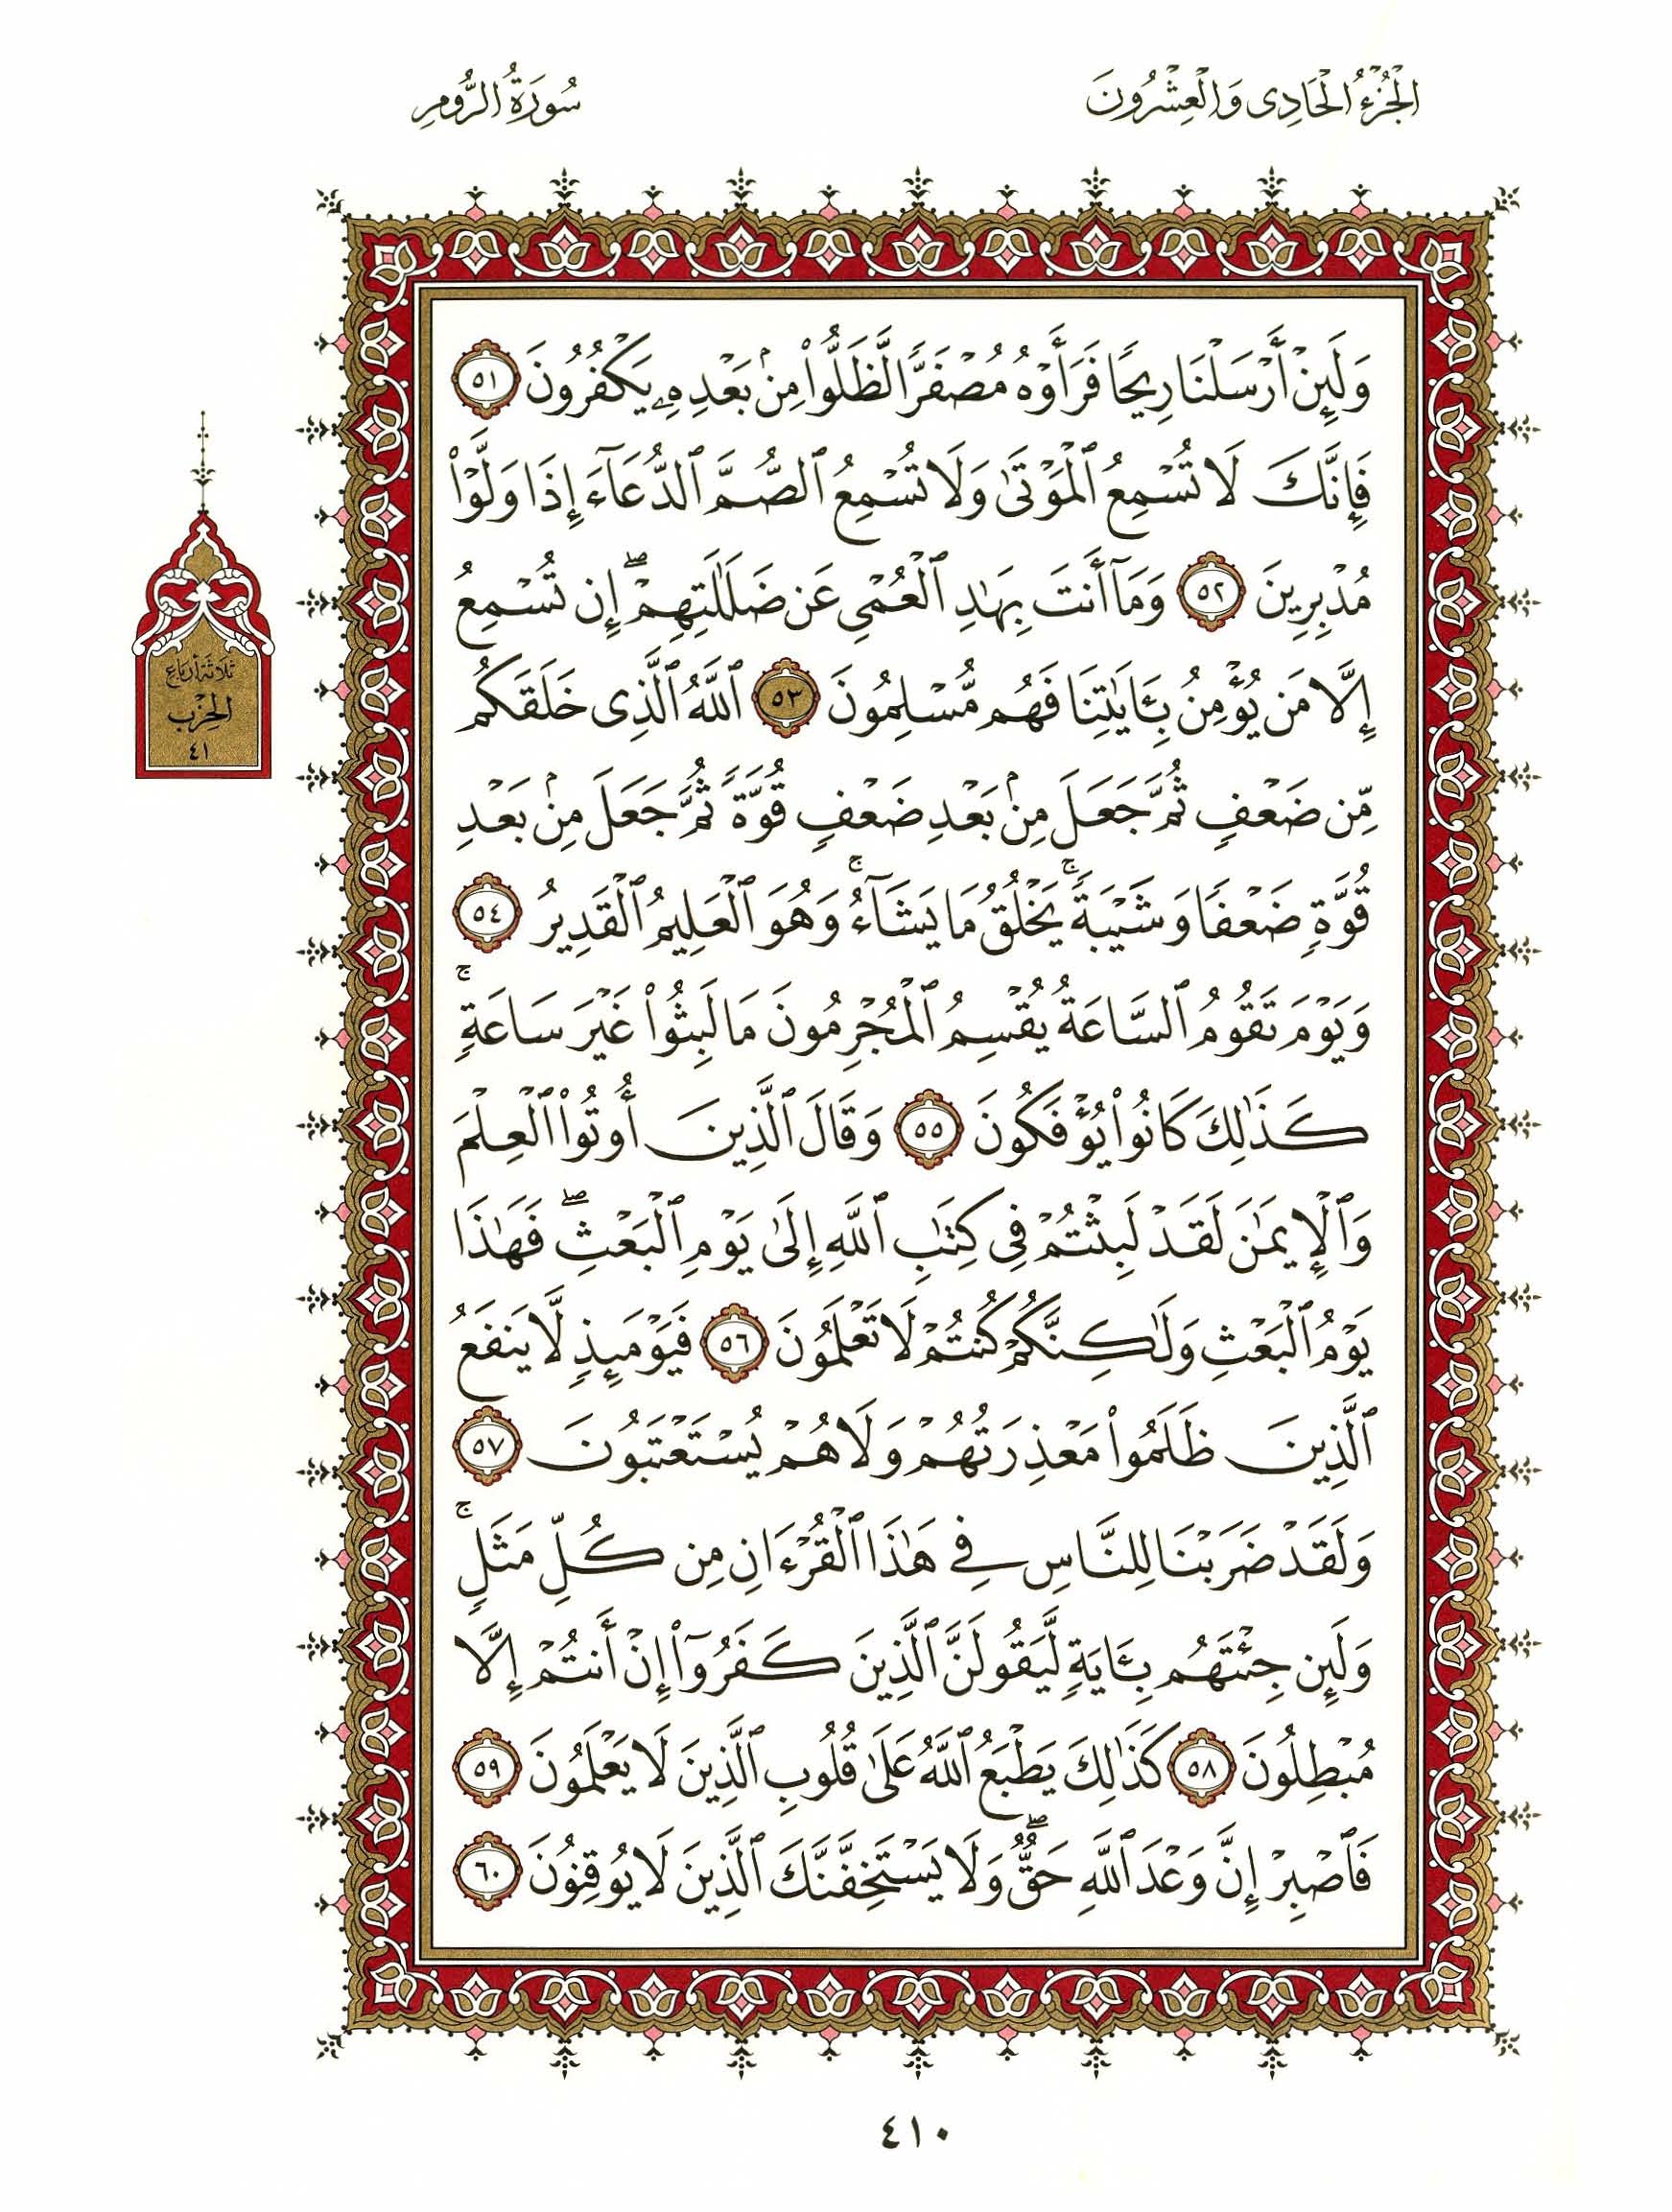 الجُزْءُ الْحَادِى وَالْعِشْرُونَ
سُورَةُ الرُّومِ
وَلَئِنْ أَرْسَلْنَا رِيحًا فَرَأَوْهُ مُصْفَرًّا لَّظَلُّوا۟ مِنۢ بَعْدِهِۦ يَكْفُرُونَ ٥١
فَإِنَّكَ لَا تُسْمِعُ ٱلْمَوْتَىٰ وَلَا تُسْمِعُ ٱلصُّمَّ ٱلدُّعَآءَ إِذَا وَلَّوْا۟
مُدْبِرِينَ ٥٢ وَمَآ أَنتَ بِهَـٰدِ ٱلْعُمْىِ عَن ضَلَـٰلَتِهِمْ ۖ إِن تُسْمِعُ
إِلَّا مَن يُؤْمِنُ بِـَٔايَـٰتِنَا فَهُم مُّسْلِمُونَ ٥٣ ٱللَّهُ ٱلَّذِى خَلَقَكُم
مِّن ضَعْفٍ ثُمَّ جَعَلَ مِنۢ بَعْدِ ضَعْفٍ قُوَّةً ثُمَّ جَعَلَ مِنۢ بَعْدِ
قُوَّةٍ ضَعْفًا وَشَيْبَةً ۚ يَخْلُقُ مَا يَشَآءُ ۚ وَهُوَ ٱلْعَلِيمُ ٱلْقَدِيرُ ٥٤
وَيَوْمَ تَقُومُ ٱلسَّاعَةُ يُقْسِمُ ٱلْمُجْرِمُونَ مَا لَبِثُوا۟ غَيْرَ سَاعَةٍ ۚ
كَذَٰلِكَ كَانُوا۟ يُؤْفَكُونَ ٥٥ وَقَالَ ٱلَّذِينَ أُوتُوا۟ ٱلْعِلْمَ
وَٱلْإِيمَـٰنَ لَقَدْ لَبِثْتُمْ فِى كِتَـٰبِ ٱللَّهِ إِلَىٰ يَوْمِ ٱلْبَعْثِ ۖ فَهَـٰذَا
يَوْمُ ٱلْبَعْثِ وَلَـٰكِنَّكُمْ كُنتُمْ لَا تَعْلَمُونَ ٥٦ فَيَوْمَئِذٍ لَّا يَنفَعُ
ٱلَّذِينَ ظَلَمُوا۟ مَعْذِرَتُهُمْ وَلَا هُمْ يُسْتَعْتَبُونَ ٥٧
وَلَقَدْ ضَرَبْنَا لِلنَّاسِ فِى هَـٰذَا ٱلْقُرْءَانِ مِن كُلِّ مَثَلٍ ۚ
وَلَئِن جِئْتَهُم بِـَٔايَةٍ لَّيَقُولَنَّ ٱلَّذِينَ كَفَرُوٓا۟ إِنْ أَنتُمْ إِلَّا
مُبْطِلُونَ ٥٨ كَذَٰلِكَ يَطْبَعُ ٱللَّهُ عَلَىٰ قُلُوبِ ٱلَّذِينَ لَا يَعْلَمُونَ ٥٩
فَٱصْبِرْ إِنَّ وَعْدَ ٱللَّهِ حَقٌّ ۖ وَلَا يَسْتَخِفَّنَّكَ ٱلَّذِينَ لَا يُوقِنُونَ ٦٠
ثَلَاثَةُ أَرْبَاعِ
الْحِزْبِ
٤١
٤١٠